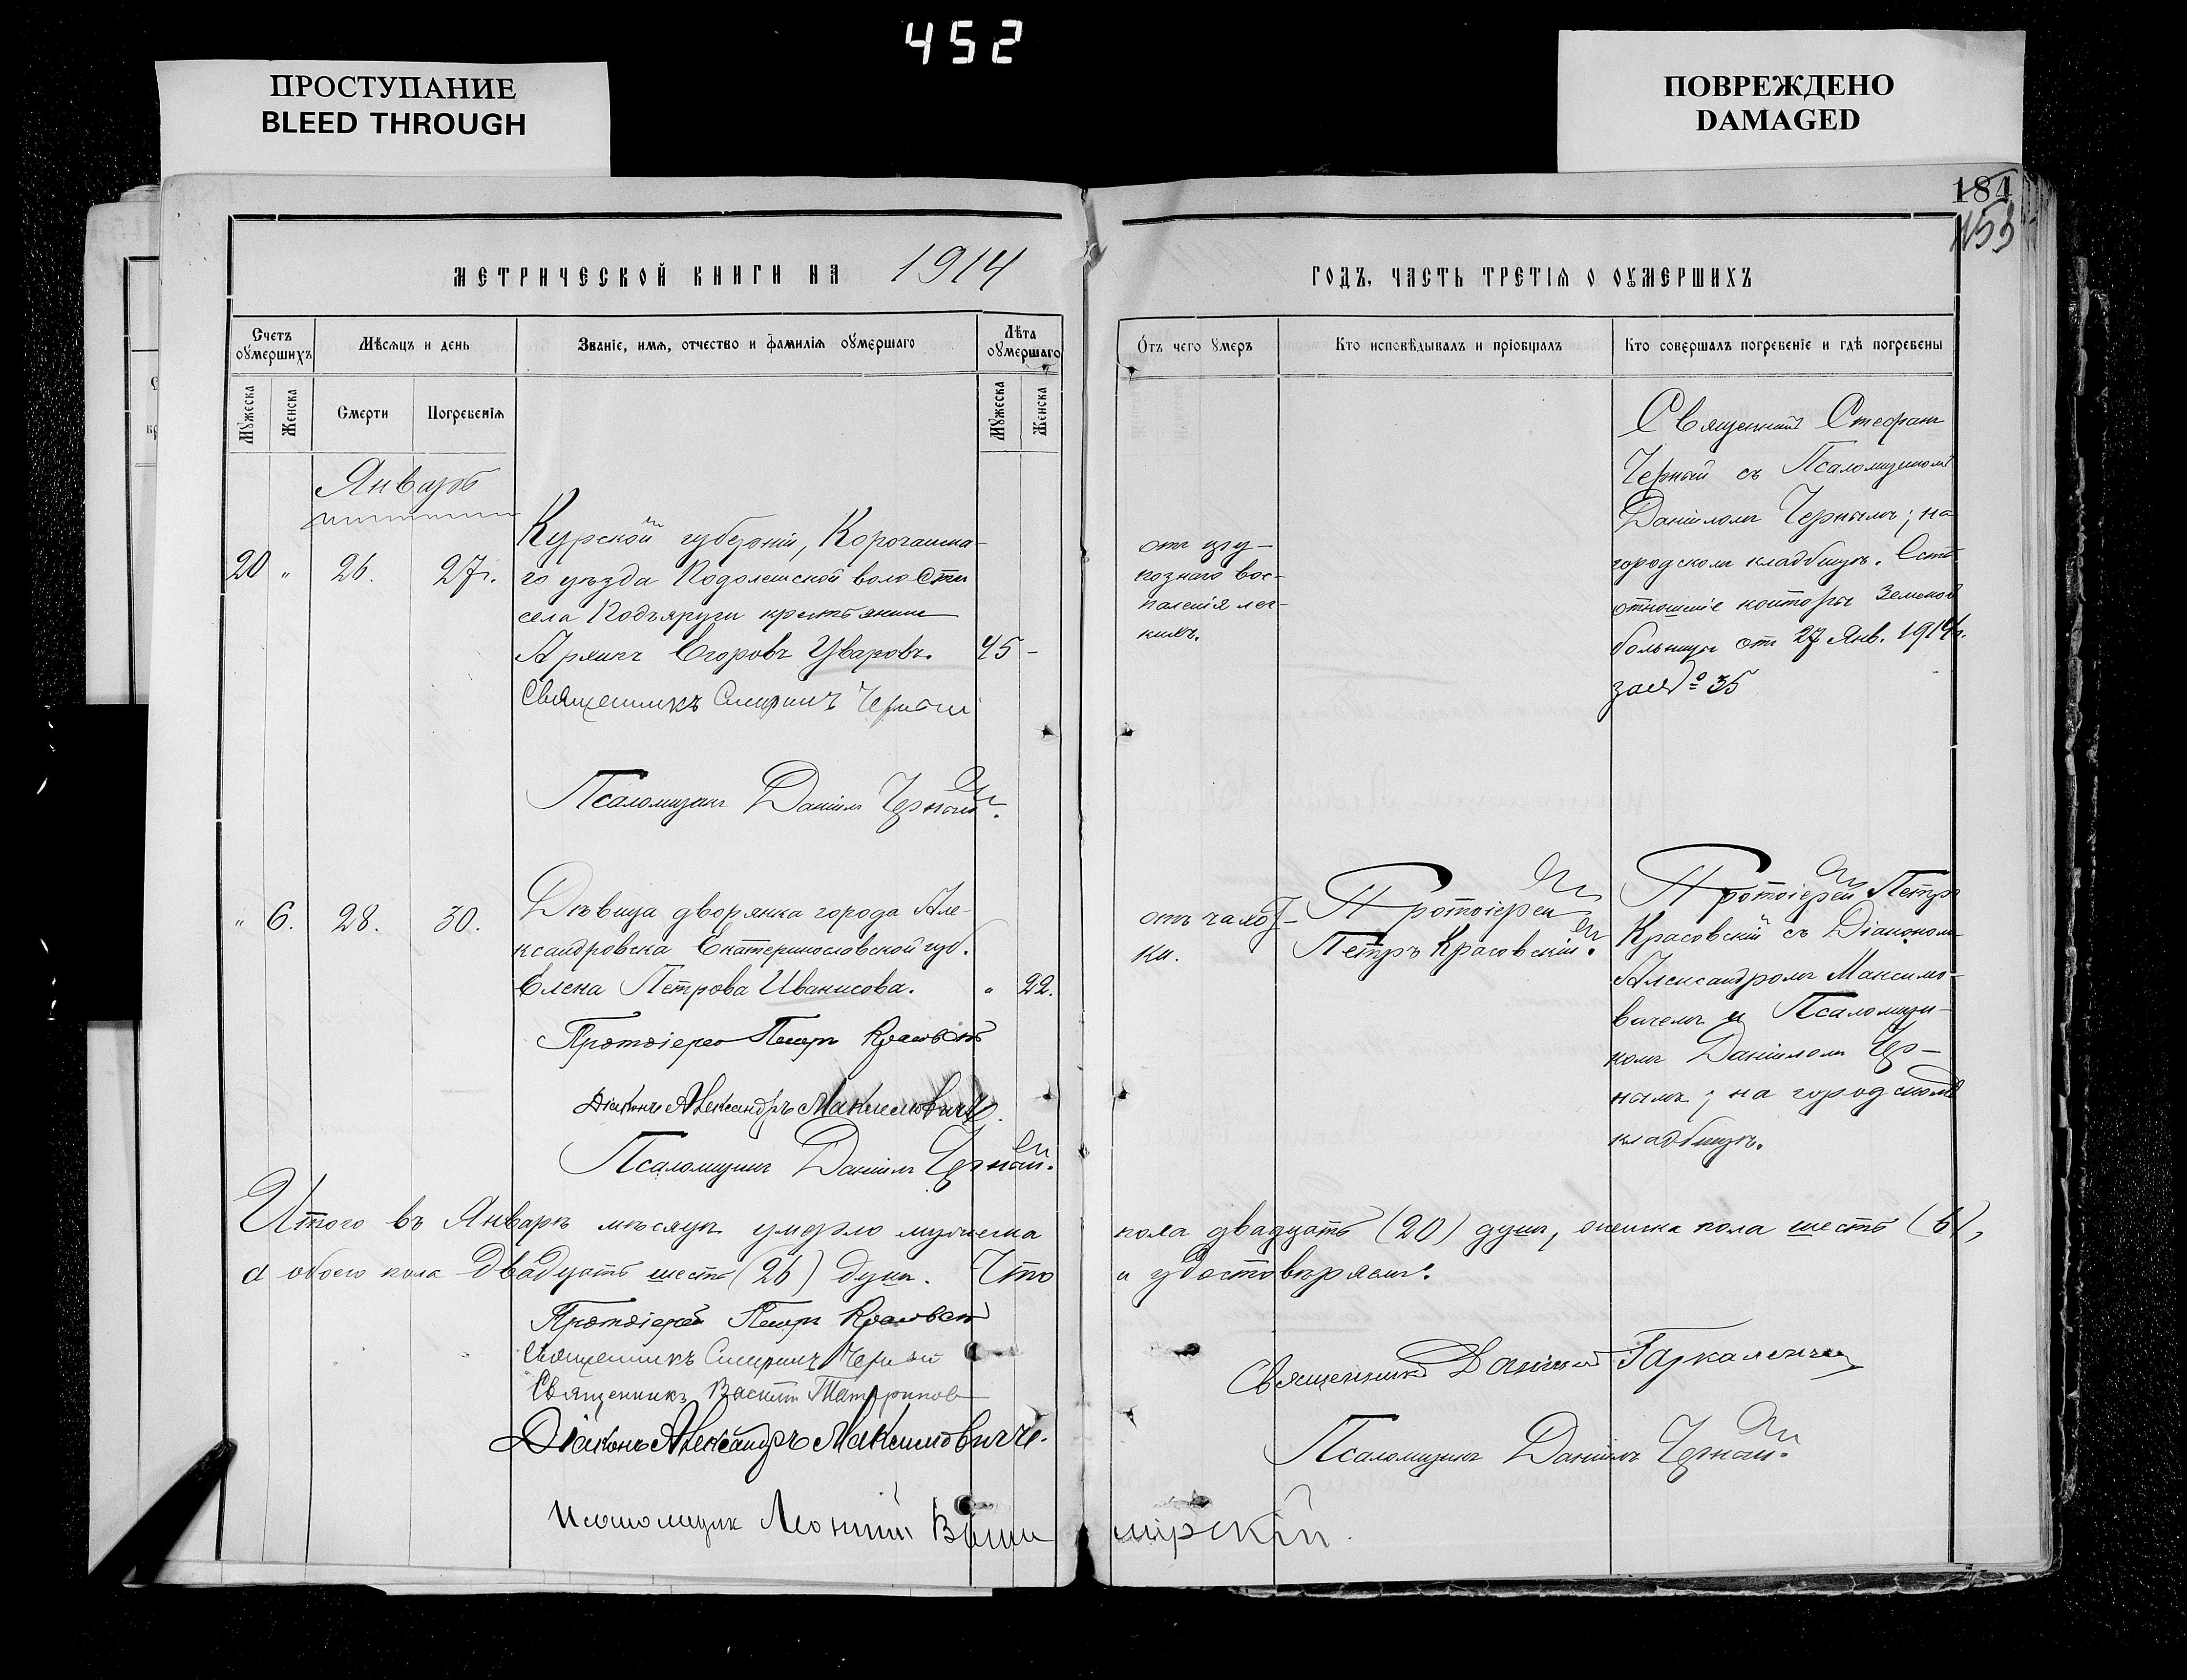 452
ПРОСТУПАНИЕ
BLEED THROUGH
ПОВРЕЖДЕНО
DAMAGED
184
МЕТРИЧЕСКОЙ КНИГИ НА 1914
Счетъ оумершихъ
Мѣсяцъ и день
Званіе, имя, отчество и фамилія оумершаго
Лѣта оумершаго
Мужеска
Женска
Смерти
Погребенія
Мужеска
Женска
Январь
20 " 26. 27.
Курской губерніи, Корочанска-
го уѣзда Подолешской волости
села Подъяруги крестьянинъ
Егоровъ Уваровъ. 45 -
Священникъ Стефанъ Черный
Псаломщикъ Даніилъ Черный.
" 6. 28. 30.
Дѣвица дворянка города Але-
ксандровска Екатеринославской губ.
Елена Петрова Иванисова. " 22.
Протоіерей Петръ Красовскій
Діаконъ Александръ Максимовичъ.
Псаломщикъ Даніилъ Черный.
Итого въ Январѣ мѣсяцѣ умерло мужеска
а обоего пола двадцать шесть (26) душъ. Что
Протоіерей Петръ Красовскій
Священникъ Стефанъ Черный
Священникъ Василій Татариновъ
Діаконъ Александръ Максимовичъ.
Псаломщик
ГОДЪ, ЧАСТЬ ТРЕТІЯ О ОУМЕРШИХЪ
Отъ чего умеръ
Кто исповѣдывалъ и пріобщалъ
Кто совершалъ погребеніе и гдѣ погребены
отъ кру-
познаго вос-
паленія лег-
кихъ.
Священникъ Стефанъ
Черный съ Псаломщикомъ
Даніиломъ Чернымъ; на
городскомъ кладбищѣ. Есть
отношеніе конторы Земской
больницы отъ 27 Янв. 1914г.
за № 35
отъ чахот-
ки.
Протоіерей
Петръ Красовскій.
Протоіерей Петръ
Красовскій съ Діакономъ
Александромъ Максимо-
вичемъ и Псаломщи-
комъ Даніиломъ Чер-
нымъ; на городскомъ
кладбищѣ.
пола двадцать (20) душъ, женска пола шесть (6),
и удостовѣряемъ.
Священникъ Даніилъ
Псаломщикъ Даніилъ Черный.